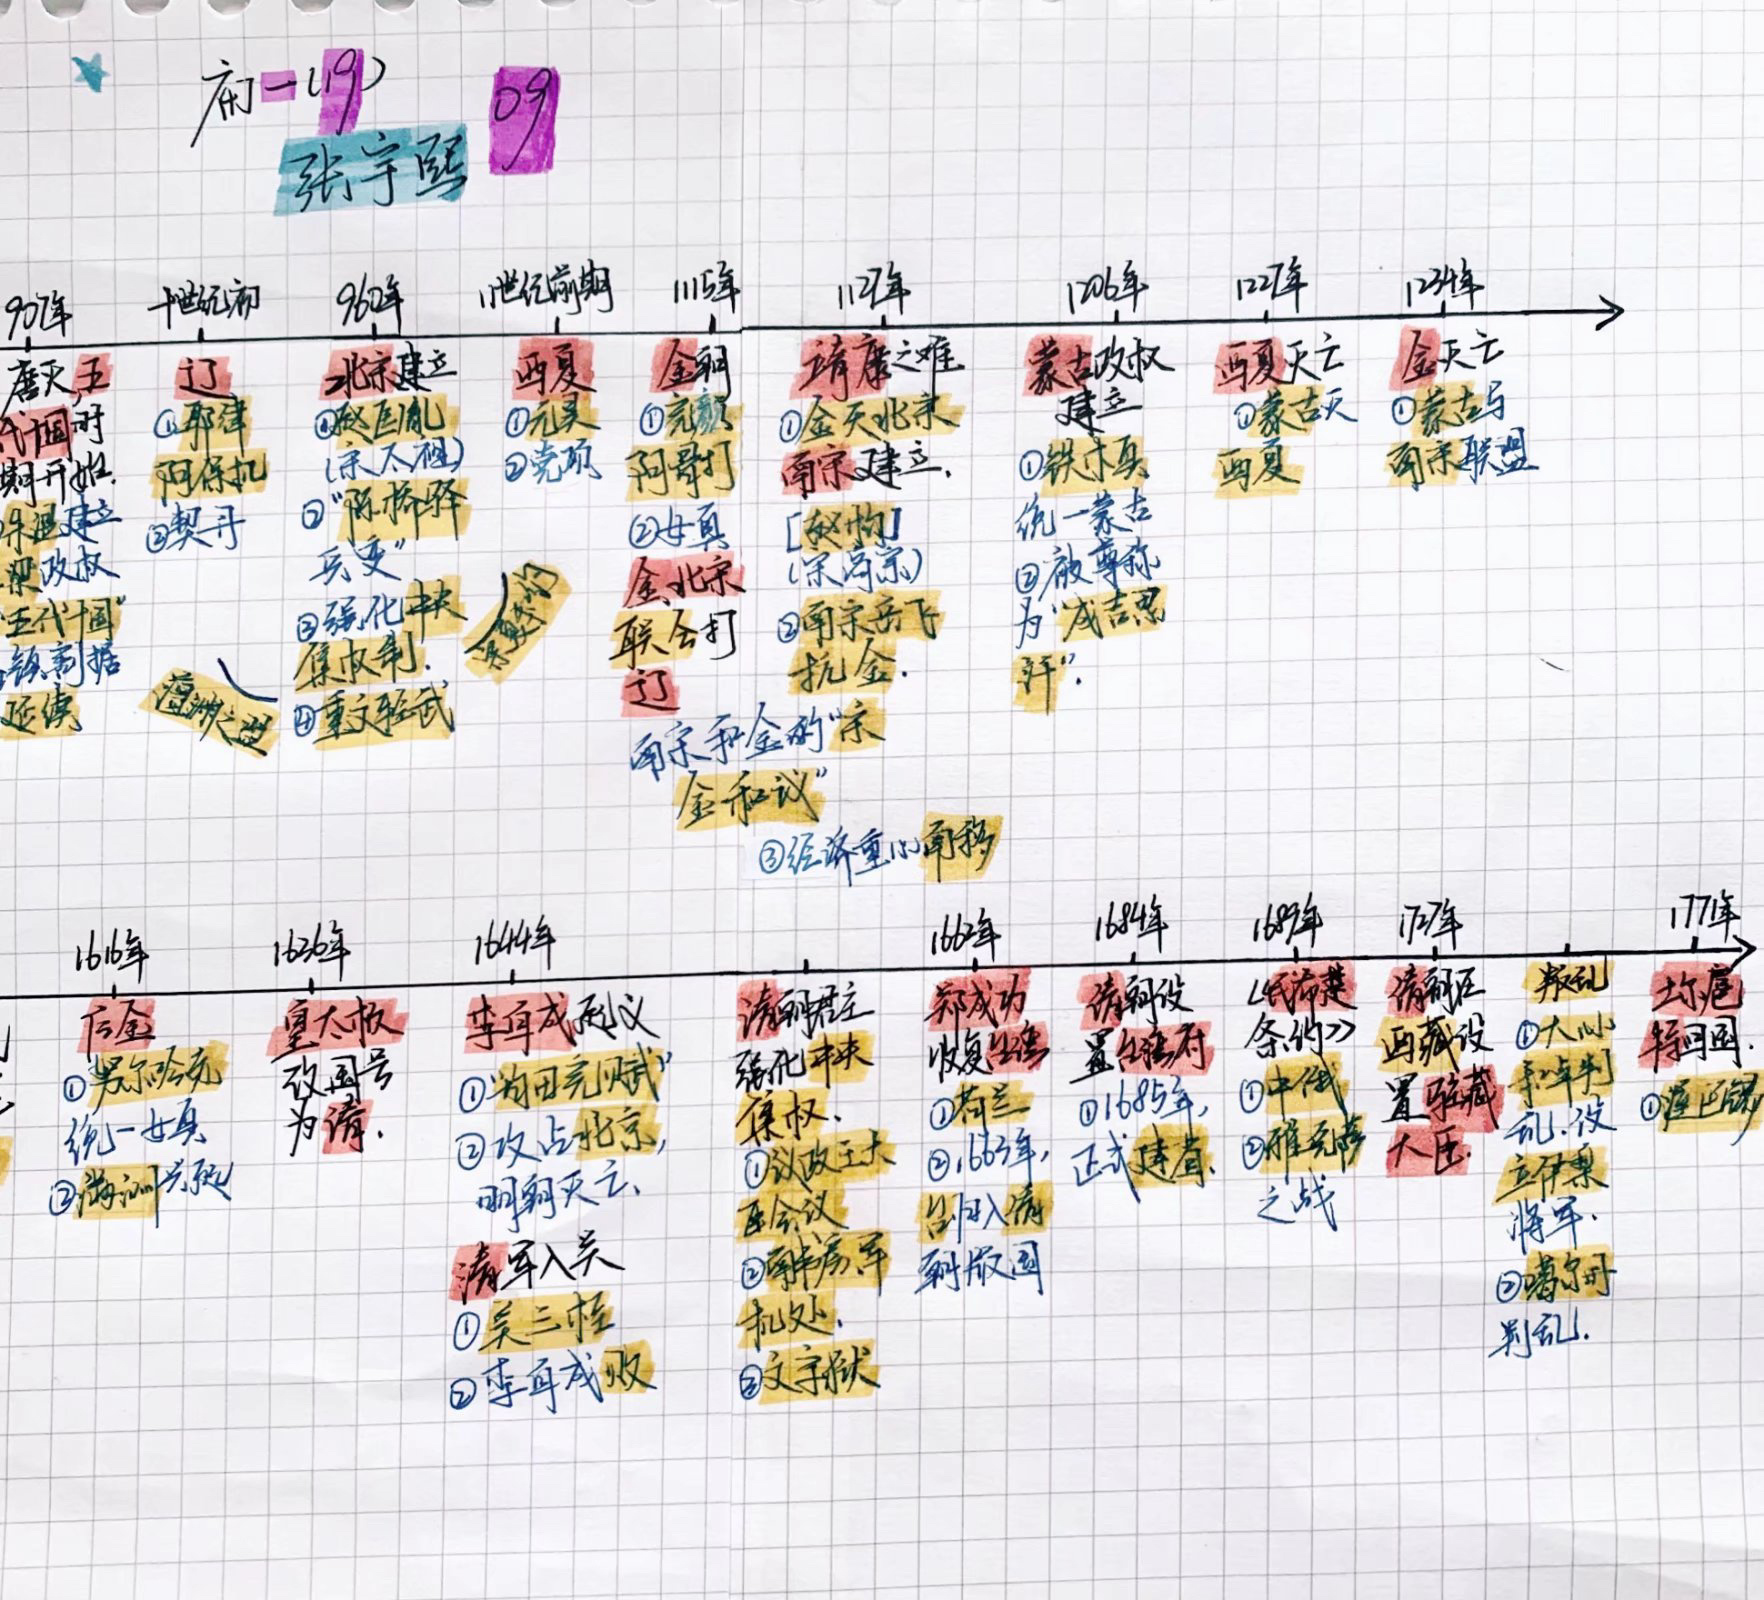 高一(19)
09
张宇熙
907年
十世纪初
960年
11世纪前期
1115年
1127年
1206年
1227年
1234年
唐灭,五
代十国时
期开始.
朱温建立
梁政权
"五代十国"
镇割据
延续
辽
①耶律
阿保机
②契丹
澶渊之盟
北宋建立
①赵匡胤
(宋太祖)
②"陈桥驿
兵变"
③强化中央
集权制.
④重文轻武
西夏
①元昊
②党项
宋夏和约
金朝
①完颜
阿骨打
②女真
金、北宋
联合打
辽
靖康之难
①金灭北宋
南宋建立.
[赵构]
(宋高宗)
②南宋岳飞
抗金.
南宋和金的"宋
金和议"
③经济重心南移
蒙古政权
建立
①铁木真
统一蒙古
②被尊称
为"成吉思
汗".
西夏灭亡
①蒙古灭
西夏
金灭亡
①蒙古与
南宋联盟
1616年
1636年
1644年
1662年
1684年
1689年
1727年
1771年
后金
①努尔哈赤
统一女真
②满洲兴起
皇太极
改国号
为清.
李自成起义
①"均田免赋"
②攻占北京,
明朝灭亡、
清军入关
①吴三桂
②李自成败
清朝君主
强化中央
集权.
①议政王大
臣会议
②南书房、军
机处.
③文字狱
郑成功
收复台湾
①荷兰
②1663年,
台归入清
朝版图
清朝设
置台湾府
①1685年,
正式建省.
《尼布楚
条约》
①中俄
②雅克萨
之战
清朝在
西藏设
置驻藏
大臣.
叛乱
①大小
和卓判
乱.设
立伊犁
将军.
②噶尔丹
判乱.
土尔扈
特回国.
①渥巴锡